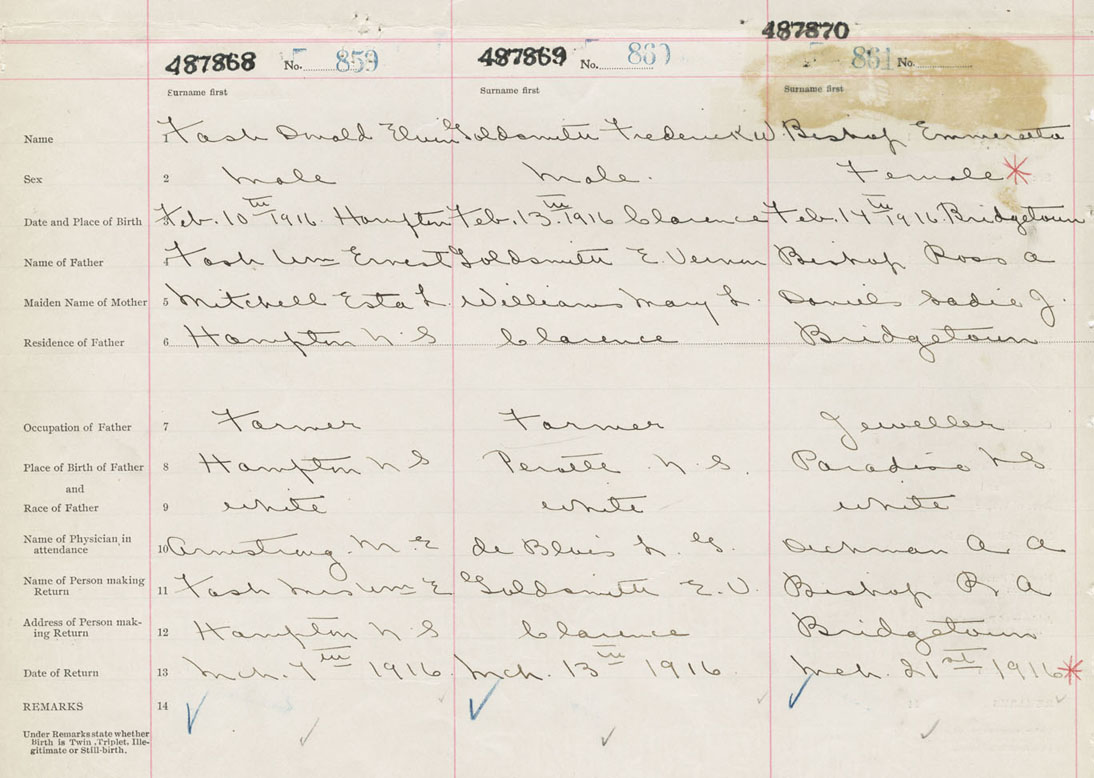 487870
487868 No. 859 487869 No. 860 861 No.
Surname first Surname first Surname first
Name 1 Fash Donald Elvin Goldsmith Frederick W Bishop Emmereta
Sex 2 Male Male. Female *
Date and Place of Birth 3 Feb. 10th 1916 Hampton Feb. 13th 1916 Clarence Feb. 14th 1916 Bridgetown
Name of Father 4 Fash Wm Ernest Goldsmith E. Vernon Bishop Ross A
Maiden Name of Mother 5 Mitchell Esta L. Williams Mary L. Daniels Sadie J.
Residence of Father 6 Hampton N S Clarence Bridgetown
Occupation of Father 7 Farmer Farmer Jeweller
Place of Birth of Father 8 Hampton N S Perotte N. S. Paradise N S
and
Race of Father 9 White White White
Name of Physician in
attendance 10 Armstrong M. E de Blois L. G. Dechman A. A
Name of Person making
Return 11 Fash Mrs Wm E Goldsmith E. V. Bishop R. A
Address of Person mak-
ing Return 12 Hampton N S Clarence Bridgetown
Date of Return 13 Mch. 7th 1916 Mch. 13th 1916 Mch. 21st 1916 *
REMARKS 14
Under Remarks state whether
Birth is Twin, Triplet, Ille-
gitimate or Still-birth.